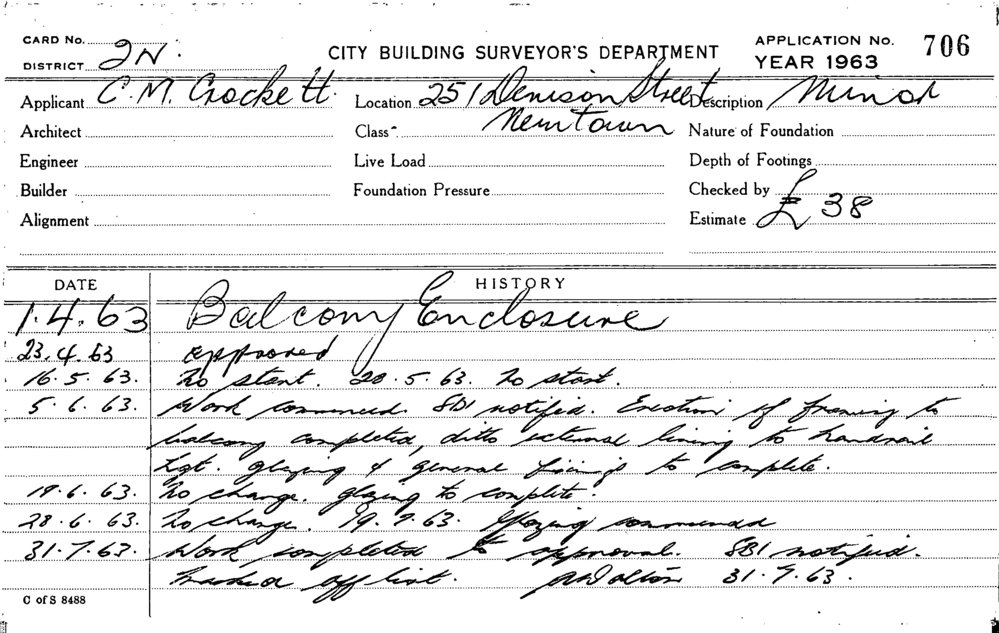 CARD No.
DISTRICT 2N.
CITY BUILDING SURVEYOR'S DEPARTMENT
APPLICATION No. 706
YEAR 1963
Applicant C. M. Crockett. Location 251 Denison Street Description Minor
Architect Class Newtown Nature of Foundation
Engineer Live Load Depth of Footings
Builder Foundation Pressure Checked by
Alignment Estimate £ 38
DATE HISTORY
1.4.63 Balcony Enclosure
23.4.63 approved
16.5.63. No start. 20.5.63. No start.
5.6.63. Work commenced. SBI notified. Erection of framing to
balcony completed, ditto external lining to handrail
hgt. glazing & general fixings to complete.
19.6.63. No change. glazing to complete.
28.6.63. No change. 19.7.63. Glazing commenced
31.7.63. Work completed to approval. SBI notified.
Marked off list. 31.7.63.
C of S 8488